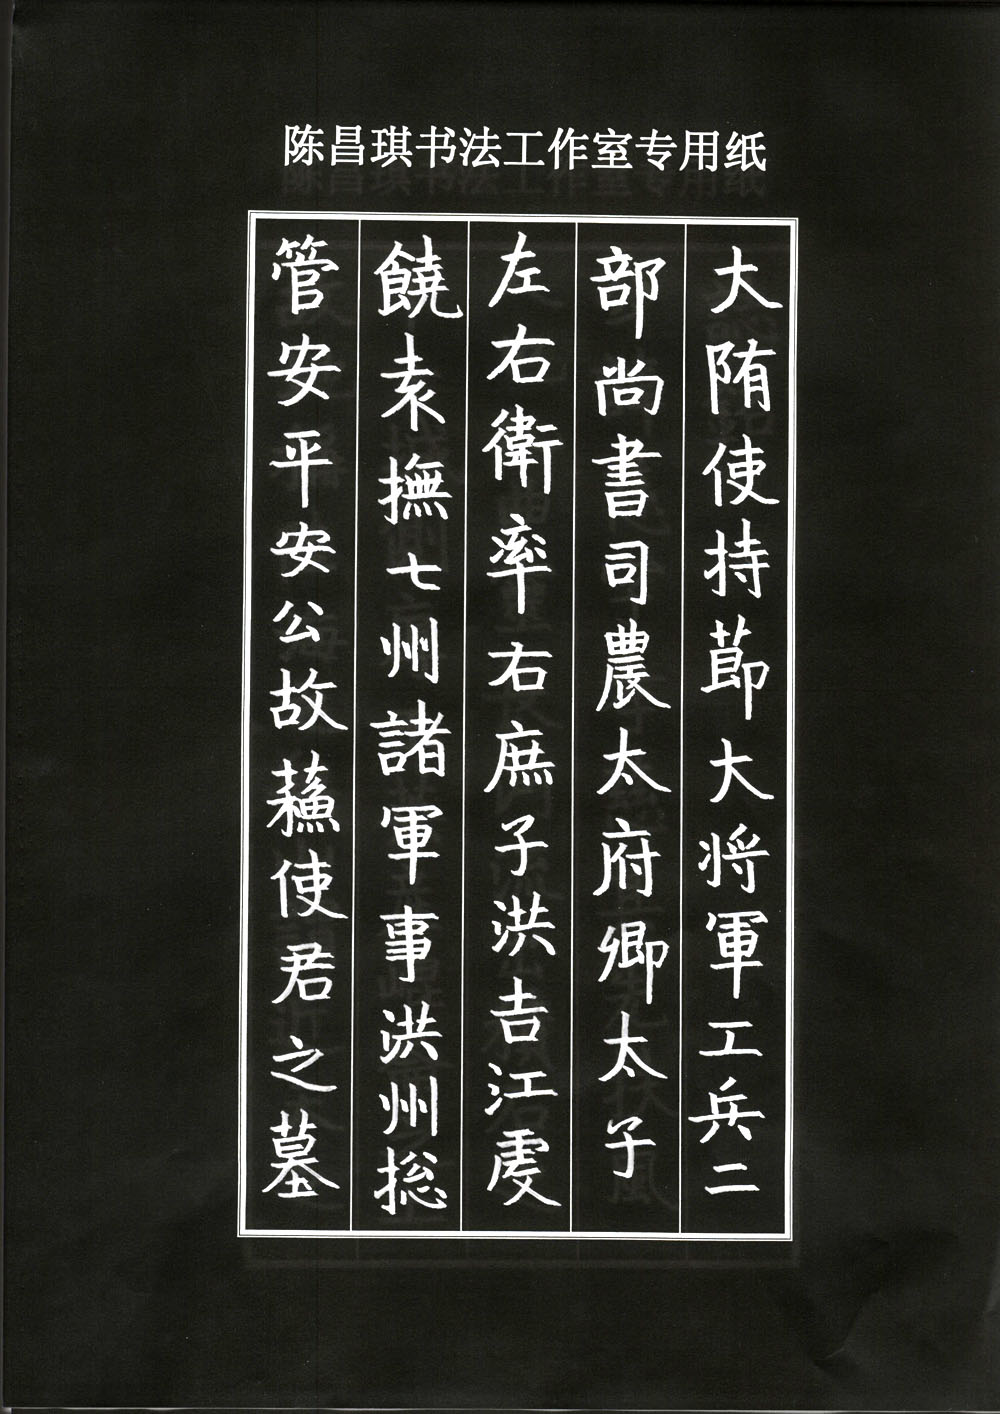 陈昌琪书法工作室专用纸
大陏使持莭大将軍工兵二
部尚書司農太府卿太子
左右衛率右庶子洪吉江虔
饒袁撫七州諸軍事洪州捴
管安平安公故蘓使君之墓